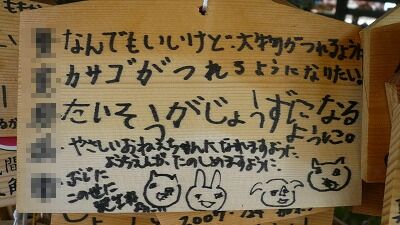 なんでもいいけど、大物がつれるように
カサゴがつれるようになりたい!
たいそうがじょうずになる
ように。
やさしいおねえちゃんになれますように
ようちえんが、たのしめますように。
2007.